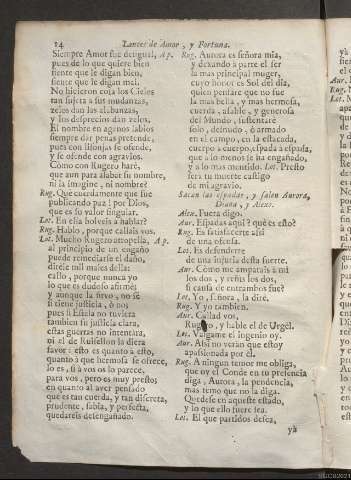 14 Lances de Amor, y Fortuna.
Siempre Amor fue desigual, Ap.
pues de lo que quiere bien
siente que le digan bien,
siente que le digan mal.
No hicieron cosa los Cielos
tan sujeta a sus mudanzas,
zelos dan las alabanzas,
y los desprecios dan zelos.
El nombre en agenos labios
siempre dár penas pretende,
pues con lisonjas se ofende,
y se ofende con agravios.
Cómo con Rugero haré,
que aun para alabar su nombre,
ni la imagine, ni nombre?
Rug. Que cuerdamente que fue
publicando paz! por Dios,
que es su valor singular.
Lot. En ella bolveis à hablar?
Rug. Hablo, porque callais vos.
Lot. Mucho Rugero atropella, Ap.
al principio de un engaño
puede remediarse el daño,
direle mil males della:
caso, porque nunca yo
lo que es dudoso afirmé
y aunque la sirvo, no sé
si tiene justicia, ò no;
pues si Estela no tuviera
tambien su justicia clara,
estas guerras no intentára,
ni el de Ruisellon la diera
favor: esto es quanto à esto,
quanto à que hermosa se ofrece,
lo es, si à vos os lo parece,
para vos, pero es muy presto;
en quanto al aver pensado
que es tan cuerda, y tan discreta,
prudente, sabia, y perfecta,
quedareis desengañado.
Rug. Aurora es señora mia,
y dexando à parte el ser
la mas principal muger,
cuyo honor es Sol del dia,
quien pensáre que no fue
la mas bella, y mas hermosa,
cuerda, afable, y generosa
del Mundo, sustentaré
solo, desnudo, ò armado
en el campo, en la estacada,
cuerpo à cuerpo, espada à espada,
que à lo menos se ha engañado,
y à lo mas mentido. Lot. Presto
será tu muerte castigo
de mi agravio.
Sacan las espadas, y salen Aurora,
Diana, y Alexo.
Alex. Fuera digo.
Aur. Espadas aqui? què es esto?
Rug. Es satisfacerte assi
de una ofensa.
Lot. Es defenderte
de una injuria desta suerte.
Aur. Cómo me amparais à mi
los dos, y reñís los dos,
si causa de entrambos fue?
Lot. Yo, señora, la diré.
Rug. Y yo tambien.
Aur. Callad vos,
Rugero, y hable el de Urgèl.
Lot. Valgame el ingenio oy.
Aur. Assi no verán que estoy
apasionada por él.
Rug. A ningun temor me obliga,
que oy el Conde en tu presencia
diga, Aurora, la pendencia,
mas temo que no la diga.
Quedese en aqueste estado,
y lo que ello fuere sea.
Lot. El que partidos desea,
yà